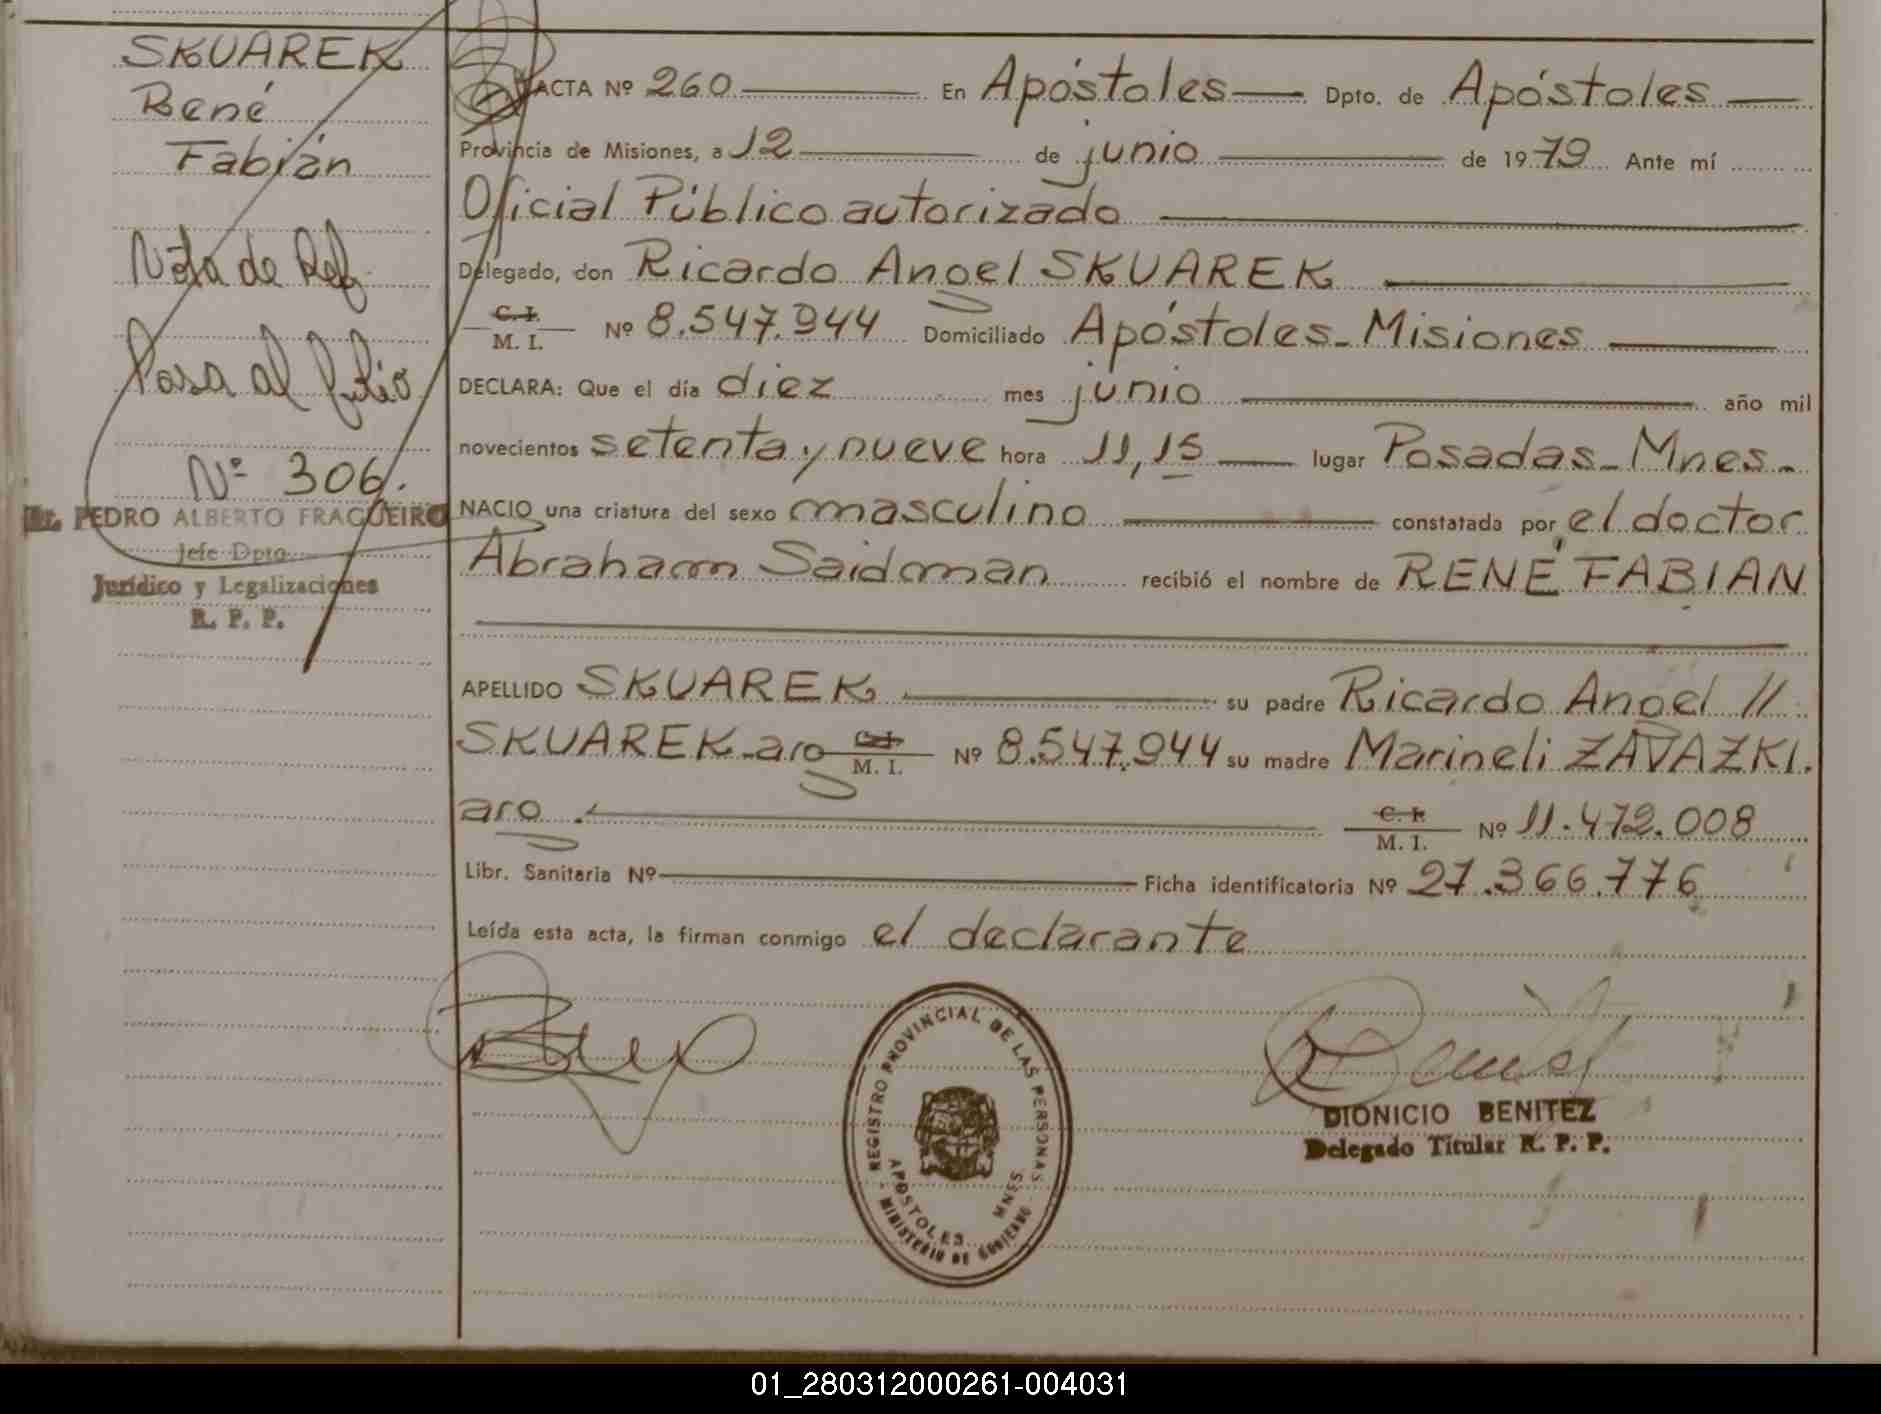 SKUAREK
René
Fabián
Nota de Ref.
Pasa al folio
Nº 306.
Dr. PEDRO ALBERTO FRAGUEIRO
Jefe Dpto.
Jurídico y Legalizaciones
R. P. P.
ACTA Nº 260 En Apóstoles Dpto. de Apóstoles
Provincia de Misiones, a 12 de junio de 1979 Ante mí
Oficial Público autorizado
Delegado, don Ricardo Angel SKUAREK
C. I.
M. I. Nº 8.547.944 Domiciliado Apóstoles - Misiones
DECLARA: Que el día diez mes junio año mil
novecientos setenta y nueve hora 11,15 lugar Posadas - Mnes -
NACIO una criatura del sexo masculino constatada por el doctor
Abraham Saidman recibió el nombre de RENÉ FABIAN
APELLIDO SKUAREK su padre Ricardo Angel //
SKUAREK - arg C. I.
M. I. Nº 8.547.944 su madre Marineli ZAVAZKI.
arg. C. I.
M. I. Nº 11.472.008
Libr. Sanitaria Nº Ficha identificatoria Nº 27.366.776
Leída esta acta, la firman conmigo el declarante
REGISTRO PROVINCIAL DE LAS PERSONAS
APOSTOLES MNES.
- MINISTERIO DE GOBIERNO -
DIONICIO BENITEZ
Delegado Titular R. P. P.
01_280312000261-004031